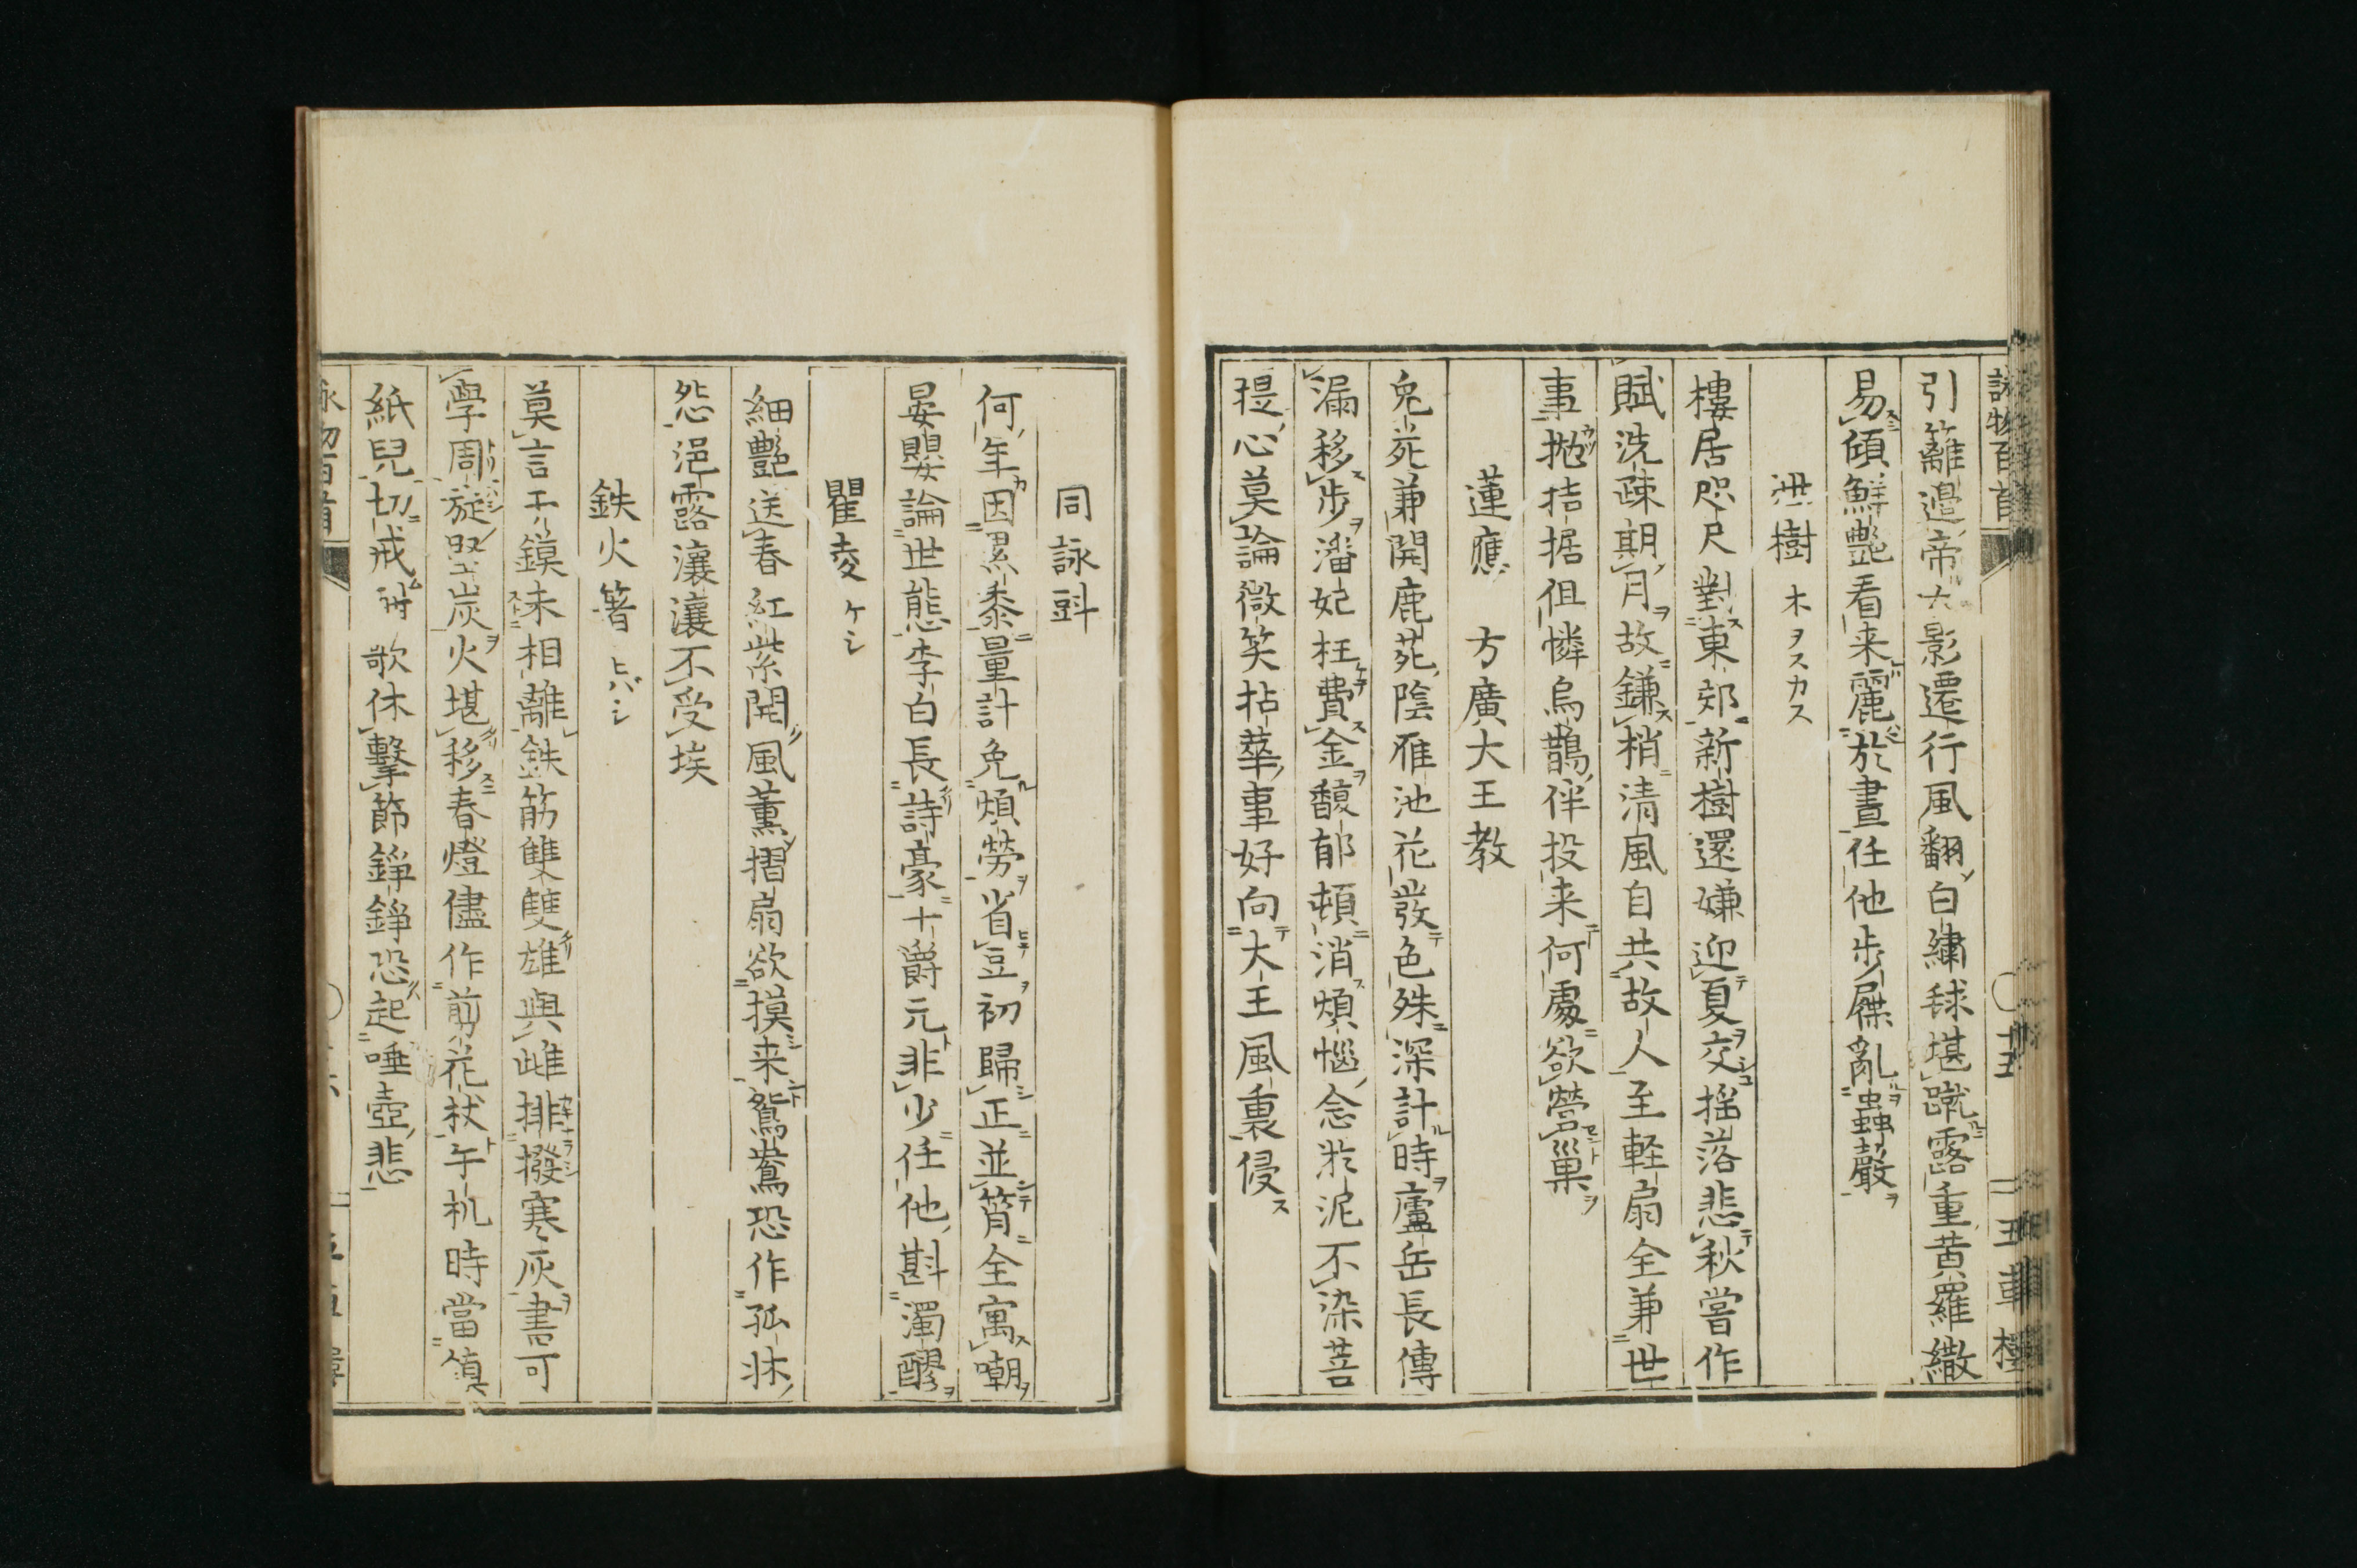 詠物百首
十五
五車樓
引籬邉帝大影遷行風翻白繍毬堪蹴露重黄羅繖
易傾鮮艶看来麗於晝任他歩屧亂蟲聲
樹 木ヲスカス
樓居咫尺對東郊新樹還嫌迎夏交揺落悲秋嘗作
賦洗疎期月故鎌梢清風自共故人至軽扇全兼世
事抛拮据但憐烏鵲伴投来何處欲營巣
蓮應 方廣大王教
兔苑兼開鹿苑陰雁池花發色殊深計時廬岳長傳
漏移歩潘妃枉費金馥郁頓消煩惱念淤泥不染菩
提心莫論微笑拈華事好向大王風裏侵
同詠斗
何年因累黍量計免煩勞省豆初歸正並筲全寓嘲
晏嬰論世態李白長詩豪十爵元非少任他斟濁醪
瞿麦 ケシ
細艶送春紅紫開風薫摺扇欲摸来鴛鴦恐作孤牀
怨浥露瀼瀼不受埃
鉄火箸 ヒバシ
莫言干鏌未相離鉄筯雙雙雄與雌排撥寒灰書可
學周旋堅炭火堪移春燈儘作剪花杖午机時當鎮
紙兒切戒 歌休擊節錚錚恐起唾壺悲